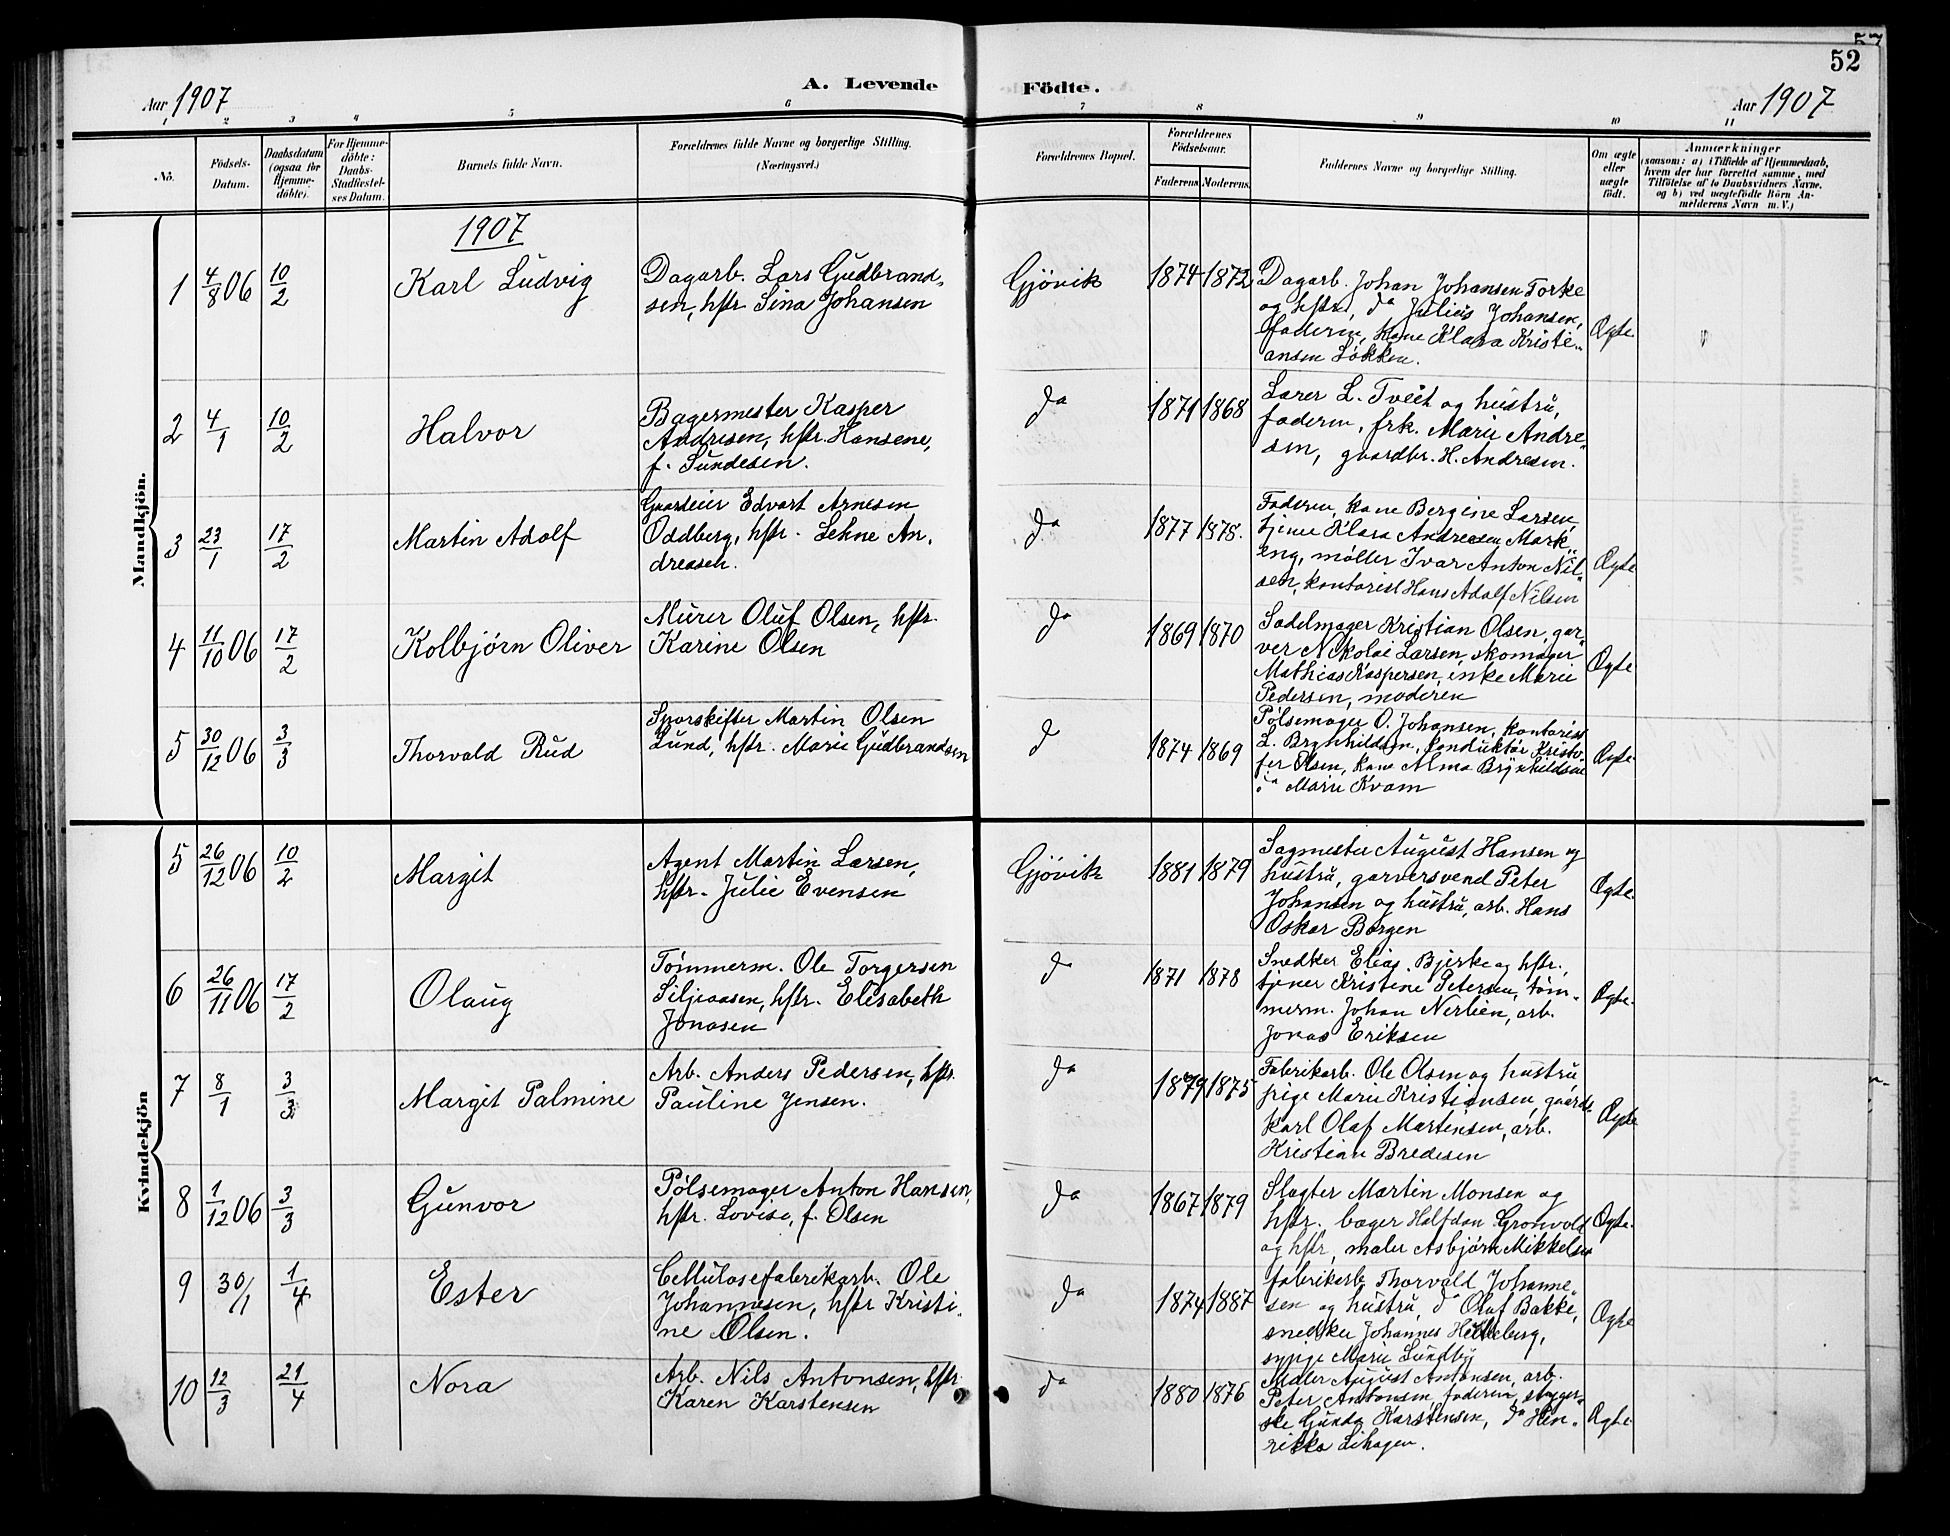 52
Aar 1907
A. Levende Födte.
Aar 1907
1 2 3 4 5 6 7 8 9 10 11
No.
Födsels-
Datum.
Daabsdatum
(ogsaa for
Hjemme-
döbte).
For Hjemme-
döbte:
Daabs-
Stadfæstel-
ses Datum.
Barnets fulde Navn.
Forældrenes fulde Navne og borgerlige Stilling.
(Næringsvei.)
Forældrenes Bopæl.
Forældrenes
Födselsaar.
Faderens. Moderens.
Faddernes Navne og borgerlige Stilling.
Om ægte
eller
uægte
födt.
Anmærkninger
(saasom: a) i Tilfælde af Hjemmedaab,
hvem der har forrettet samme, med
Tilföielse af to Daabsvidners Navne,
og b) ved uægtefödte Börn An-
melderens Navn m. V.)
Mandkjön.
1907
1 4/8 06 10/2 Karl Ludvig
Dagarb. Lars Gudbrand-
sen, hstr Sina Johansen
Gjøvik 1874 1872
Dagarb. Johan Johansen Torke
og hstru, do Julius Johansen,
faderen, kone Klara Kristi-
ansen Løkken.
Ægte
2 4/1 10/2 Halvor
Bagermester Kasper
Andresen, hstr. Hansene,
f. Sundesen.
do 1871 1868
Lærer L. Tveit og hustru,
faderen, frk. Marie Andre-
sen, gaardbr. H. Andresen.
3 23/1 17/2 Martin Adolf
Gaardeier Edvart Arnesen
Oddberg, hstr. Lehne An-
dreasen.
do 1877 1878.
Faderen, kone Bergine Larsen,
tjener Klara Andresen Mark-
eng, møller Ivar Anton Nil-
sen, kontorist Hans Adolf Nilsen
Ægte
4 11/10 06 17/2 Kolbjørn Oliver
Murer Oluf Olsen, hstr.
Karine Olsen
do 1869 1870
Sadelmager Kristian Olsen, gar-
ver Nikolai Larsen, skomager
Mathias Kaspersen, enke Marie
Pedersen, moderen
Ægte
5 30/12 06 3/3 Thorvald Rud
Sporskifter Martin Olsen
Lund, hstr. Marie Gudbrandsen
do 1874 1869
Pølsemager O. Johansen, kontorist
L. Brynhildsen, konduktør Kristo-
fer Olsen, kone Alma Brynhildsen
do Marie Kvam
Ægte
Kvindekjön
5 26/12 06 10/2 Margit
Agent Martin Larsen,
hstr. Julie Evensen
Gjøvik 1881 1879
Sagmester August Hansen og
hustru, garversvend Peter
Johansen og hustru, arb. Hans
Oskar Borgen
Ægte.
6 26/11 06 17/2 Olaug
Tømmerm. Ole Torgersen
Siljeaasen, hstr. Elisabeth
Jonasen
do 1871 1878
Snedker Elias Bjerke og hstr.,
tjener Kristine Petersen, tøm-
merm. Johan Nerlien, arb.
Jonas Eriksen
Ægte.
7 8/1 3/3 Margit Palmine
Arb. Anders Pedersen, hstr.
Pauline Jensen.
do 1879 1875
Fabrikarb. Ole Olsen og hustru
pige Marie Kristiansen, gaards-
karl Olaf Martinsen, arb.
Kristian Bredesen
Ægte
8 1/12 06 3/3 Gunvor
Pølsemager Anton Hansen,
hstr. Lovise, f. Olsen
do 1867 1879
Slagter Martin Monsen og
hstr. bager Halfdan Grønvold
og hstr, maler Asbjørn Mikkelsen
Ægte.
9 30/1 1/4 Ester
Cellulosefabrikarb. Ole
Johannesen, hstr Kristi-
ne Olsen.
do 1874 1887
fabrikarb Thorvald Johanne-
sen og hustru, do Olaf Bakke,
snedker Johannes Helleberg,
sypige Marie Lundby
Ægte
10 12/3 21/4 Nora
Arb. Nils Antonsen, hstr
Karen Karstensen
do 1880 1876
Maler August Antonsen, arb.
Peter Antonsen, faderen, stryger-
ske Gunda Karstensen, do Hen-
rikka Lihagen.
Ægte